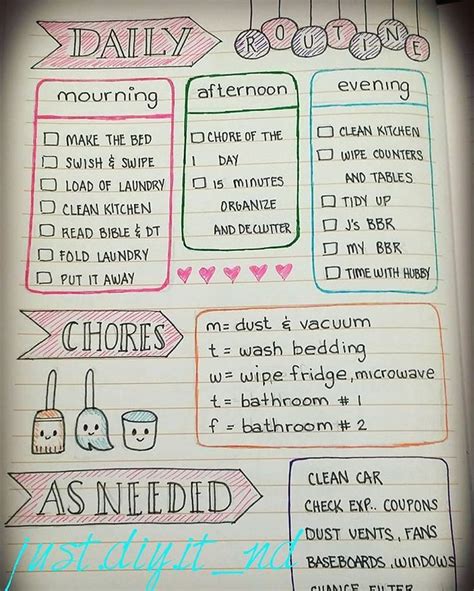 DAILY ROUTINE
mourning
MAKE THE BED
SWISH & SWIPE
LOAD OF LAUNDRY
CLEAN KITCHEN
READ BIBLE & DT
FOLD LAUNDRY
PUT IT AWAY
afternoon
CHORE OF THE
1 DAY
15 MINUTES
ORGANIZE
AND DECLUTTER
evening
CLEAN KITCHEN
WIPE COUNTERS
AND TABLES
TIDY UP
J's BBR
MY BBR
TIME WITH HUBBY
CHORES
m= dust & vacuum
t = wash bedding
w= wipe fridge, microwave
t = bathroom # 1
f = bathroom # 2
AS NEEDED
CLEAN CAR
CHECK EXP.. COUPONS
DUST VENTS, FANS
BASEBOARDS, WINDOWS
CHANGE FILTER
just.diy.it_nd